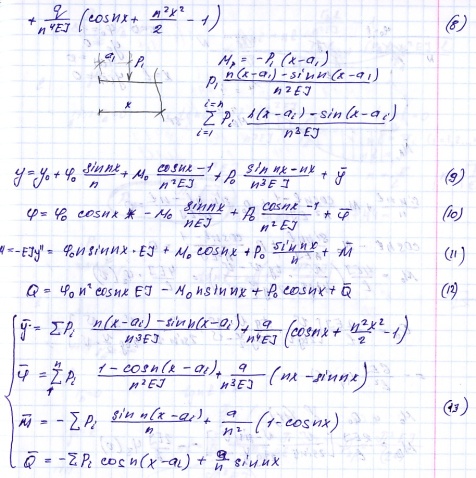 + q/(n⁴EJ) (cos nx + n²x²/2 - 1) (8)
a₁ P₁
x
Mₚ = -P₁ (x-a₁)
P₁ (n(x-a₁) - sin n(x-a₁))/(n²EJ)
∑_{i=1}^{i=n} Pᵢ (λ(x-aᵢ) - sin(x-aᵢ))/(n³EJ)
y = y₀ + φ₀ sin nx/n + M₀ (cos nx - 1)/(n²EJ) + P₀ (sin nx - nx)/(n³EJ) + ȳ (9)
φ = φ₀ cos nx - M₀ sin nx/(nEJ) + P₀ (cos nx - 1)/(n²EJ) + φ̄ (10)
M = -EJy'' = φ₀ n sin nx · EJ + M₀ cos nx + P₀ sin nx/n + M̄ (11)
Q = φ₀ n² cos nx EJ - M₀ n sin nx + P₀ cos nx + Q̄ (12)
ȳ = ∑ Pᵢ (n(x-aᵢ) - sin n(x-aᵢ))/(n³EJ) + q/(n⁴EJ) (cos nx + n²x²/2 - 1)
φ̄ = ∑₁ⁿ Pᵢ (1 - cos n(x-aᵢ))/(n²EJ) + q/(n³EJ) (nx - sin nx)
M̄ = -∑ Pᵢ sin n(x-aᵢ)/n + q/n² (1 - cos nx) (13)
Q̄ = -∑ Pᵢ cos n(x-aᵢ) + q/n sin nx